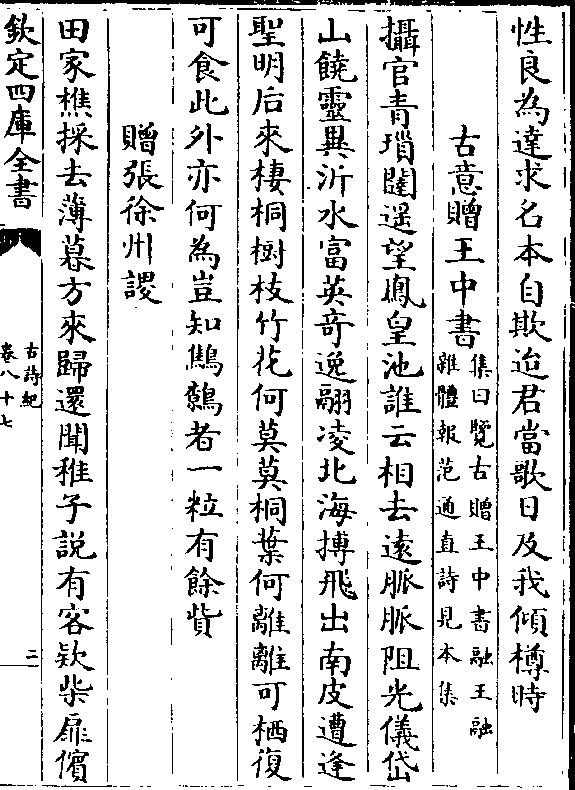 性良為達求名本自欺迨君當歌日及我傾樽時
古意贈王中書
集曰覽古贈王中書融王融
雜體報范通直詩見本集
攝官青瑣闥遥望鳳皇池誰云相去遠脈脈阻光儀岱
山饒靈異沂水富英竒逸翮凌北海摶飛出南皮遭逢
聖明后來棲桐樹枝竹花何莫莫桐葉何離離可栖復
可食此外亦何為豈知鷦鷯者一粒有餘貲
贈張徐州謖
田家樵採去薄暮方來歸還聞稚子説有客欵柴扉儐
欽定四庫全書
古詩紀
卷八十七
二